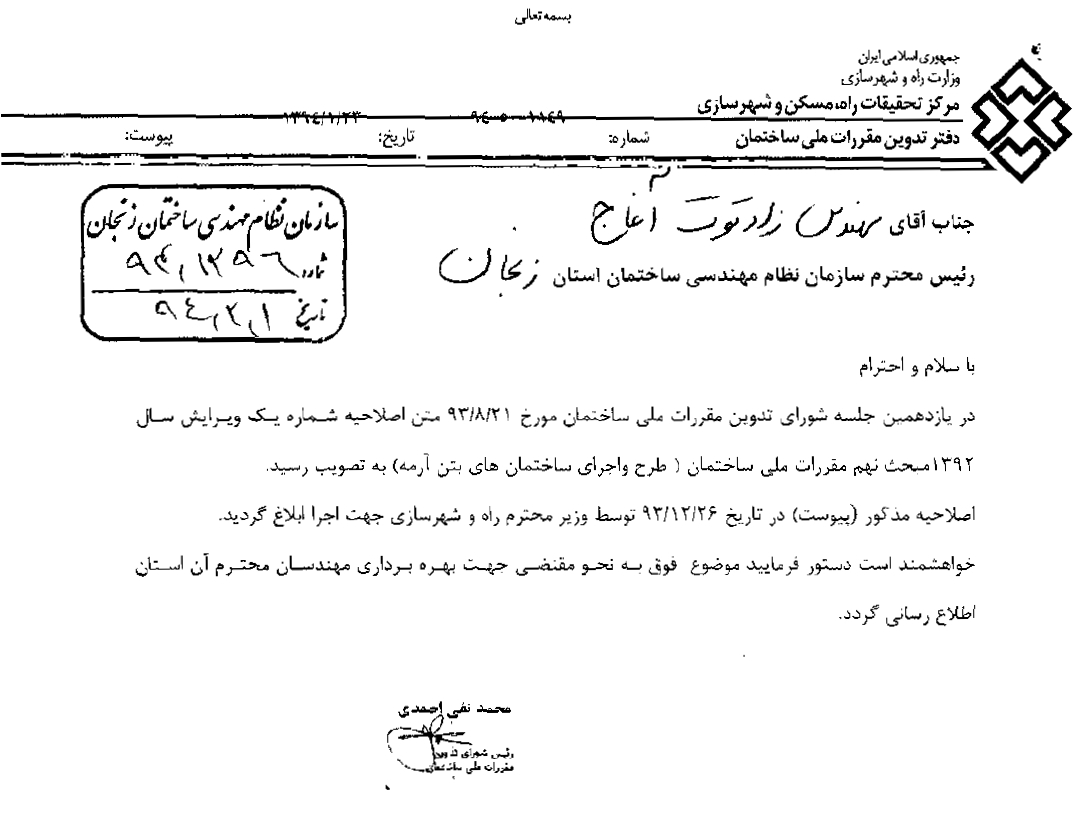 بسمه تعالی
جمهوری اسلامی ایران
وزارت راه و شهرسازی
مرکز تحقیقات راه،مسکن و شهرسازی
دفتر تدوین مقررات ملی ساختمان
شماره: ۹۴-۵۰۰-۱۱۴۹
تاریخ: ۱۳۹٤/۱/۲۳
پیوست:
سازمان نظام مهندسی ساختمان زنجان
شماره ۹۴،۱۲۹۶
تاریخ ۹٤،۲،۱
جناب آقای مهندس آغاج
رئیس محترم سازمان نظام مهندسی ساختمان استان زنجان
با سلام و احترام
در یازدهمین جلسه شورای تدوین مقررات ملی ساختمان مورخ ۹۳/۸/۲۱ متن اصلاحیه شماره یک ویرایش سال
۱۳۹۲مبحث نهم مقررات ملی ساختمان ( طرح واجرای ساختمان های بتن آرمه) به تصویب رسید.
اصلاحیه مذکور (پیوست) در تاریخ ۹۳/۱۲/۲۶ توسط وزیر محترم راه و شهرسازی جهت اجرا ابلاغ گردید.
خواهشمند است دستور فرمایید موضوع فوق به نحو مقتضی جهت بهره برداری مهندسان محترم آن استان
اطلاع رسانی گردد.
محمد تقی احمدی
رئیس شورای تدوین
مقررات ملی ساختمان